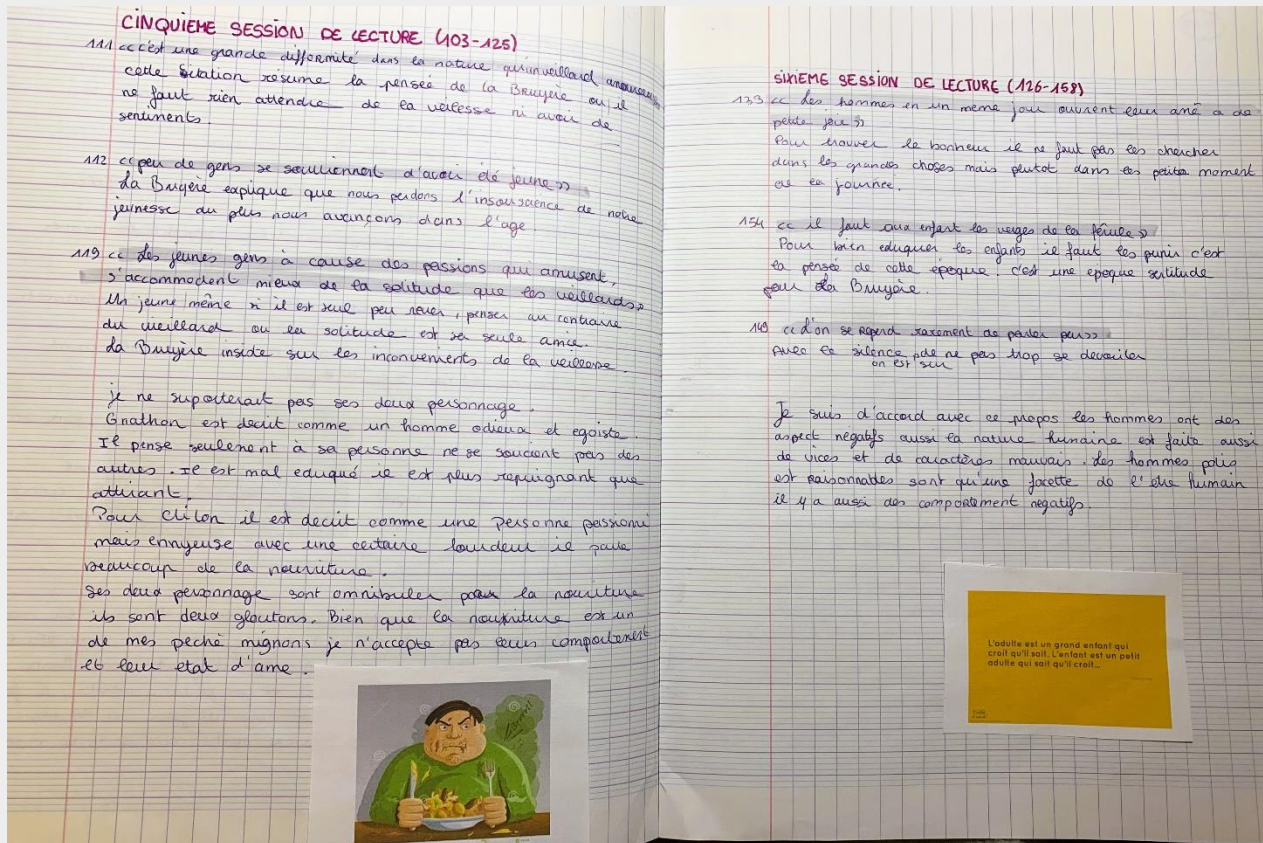 CINQUIEME SESSION DE LECTURE (103-125)
111 << c'est une grande difformité dans la nature qu'un veillard amoureux
cette sitation résume la pensée de la Bruyère ou il
ne faut rien attendre de la veillesse ni avoir de
sentiments.
112 << peu de gens se souviennent d'avoir été jeune >>
La Bruyère explique que nous perdons l'insousciance de notre
jeunesse du plus nous avançons dans l'age.
119 << des jeunes gens à cause des passions qui amusent,
s'accommodent mieux de la solitude que les veillards >>
Un jeune même si il est seul peu rever, penser au contraire
du vieillard ou la solitude est sa seule amie.
La Bruyère insiste sur les inconvenients de la veillesse.
je ne suporterait pas ses deux personnage.
Gnathon est decrit comme un homme odieux et egoiste.
Il pense seulement à sa personne ne se souciant pas des
autres. Il est mal eduqué il est plus repuignant que
attirant.
Pour cliton il est decrit comme une personne passionné
mais ennyeuse avec une certaine lourdeur il parle
beaucoup de la nourriture.
ses deux personnage sont omnibuler par la nourriture
ils sont deux gloutons. Bien que la nourriture est un
de mes peché mignons je n'accepte pas leurs comportement
et leur etat d'ame.
SIXIEME SESSION DE LECTURE (126-158)
133 << des hommes en un meme jour ouvrent leur âme a de
petite joie >>
Pour trouver le bonheur il ne faut pas les chercher
dans les grandes choses mais plutot dans les petits moment
de la journée.
154 << il faut aux enfant les verges de la férule >>
Pour bien eduquer les enfants il faut les punir c'est
la pensée de cette époque. c'est une epoque
pour La Bruyère.
149 << l'on se repend rarement de parler peu >>
Avec le silence, de ne pas trop se devoiler
on est sur
Je suis d'accord avec ce propos les hommes ont des
aspect négatifs aussi la nature humaine est faite aussi
de vices et de caractères mauvais. des hommes polis
est raisonnables sont qu'une facette de l'etre humain
il y a aussi des comportement negatifs.
L'adulte est un grand enfant qui
croit qu'il sait. L'enfant est un petit
adulte qui sait qu'il croit...